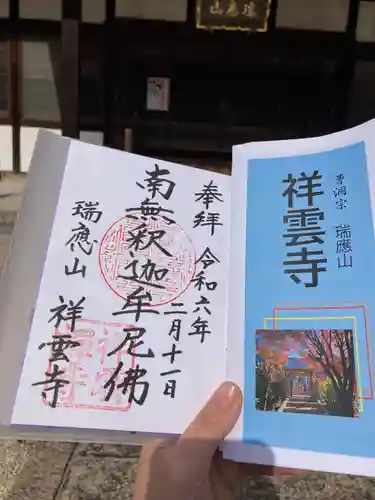 瑞應山
奉拝 令和六年
二月十一日
南無釈迦牟尼佛
瑞應山 祥雲寺
曹洞宗 瑞應山
祥雲寺